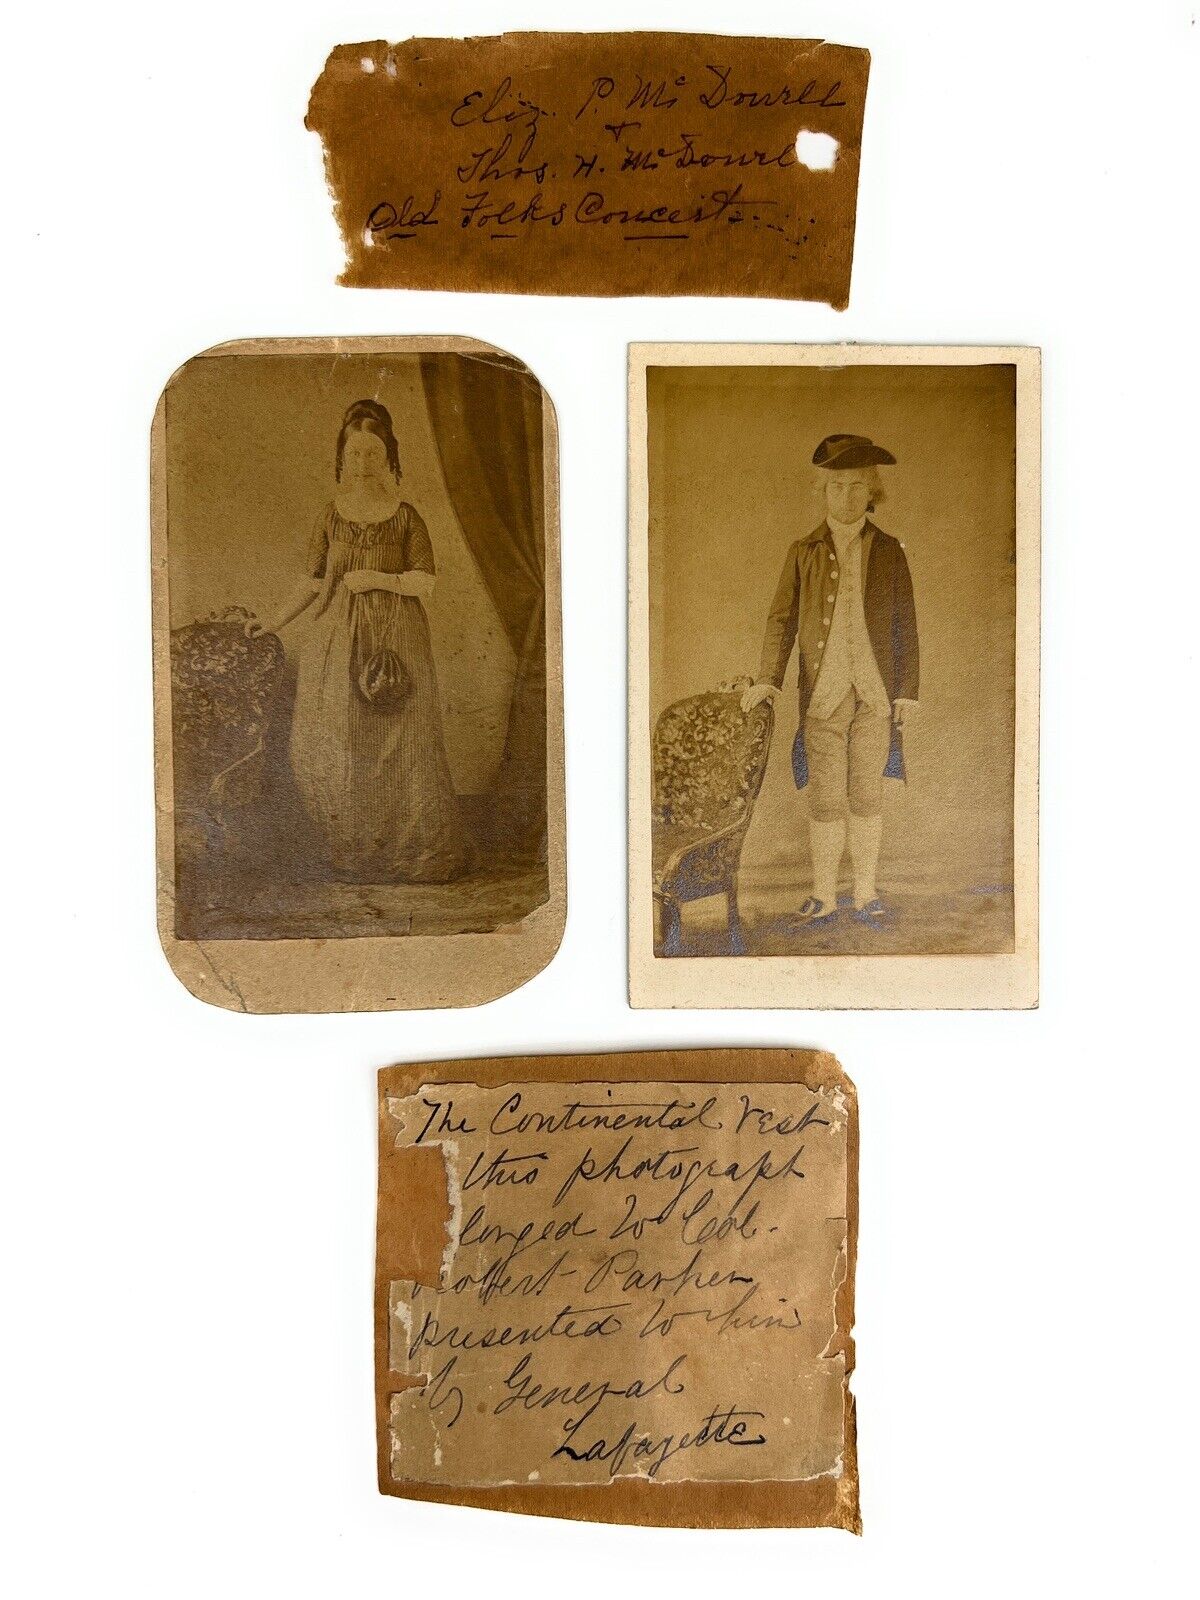 Eliz. P. McDowell
+
Thos. H. McDowel
Old Folks Concert
The Continental Vest
this photograph
longed to Col.
Robert Parker
presented to him
by General
Lafayette